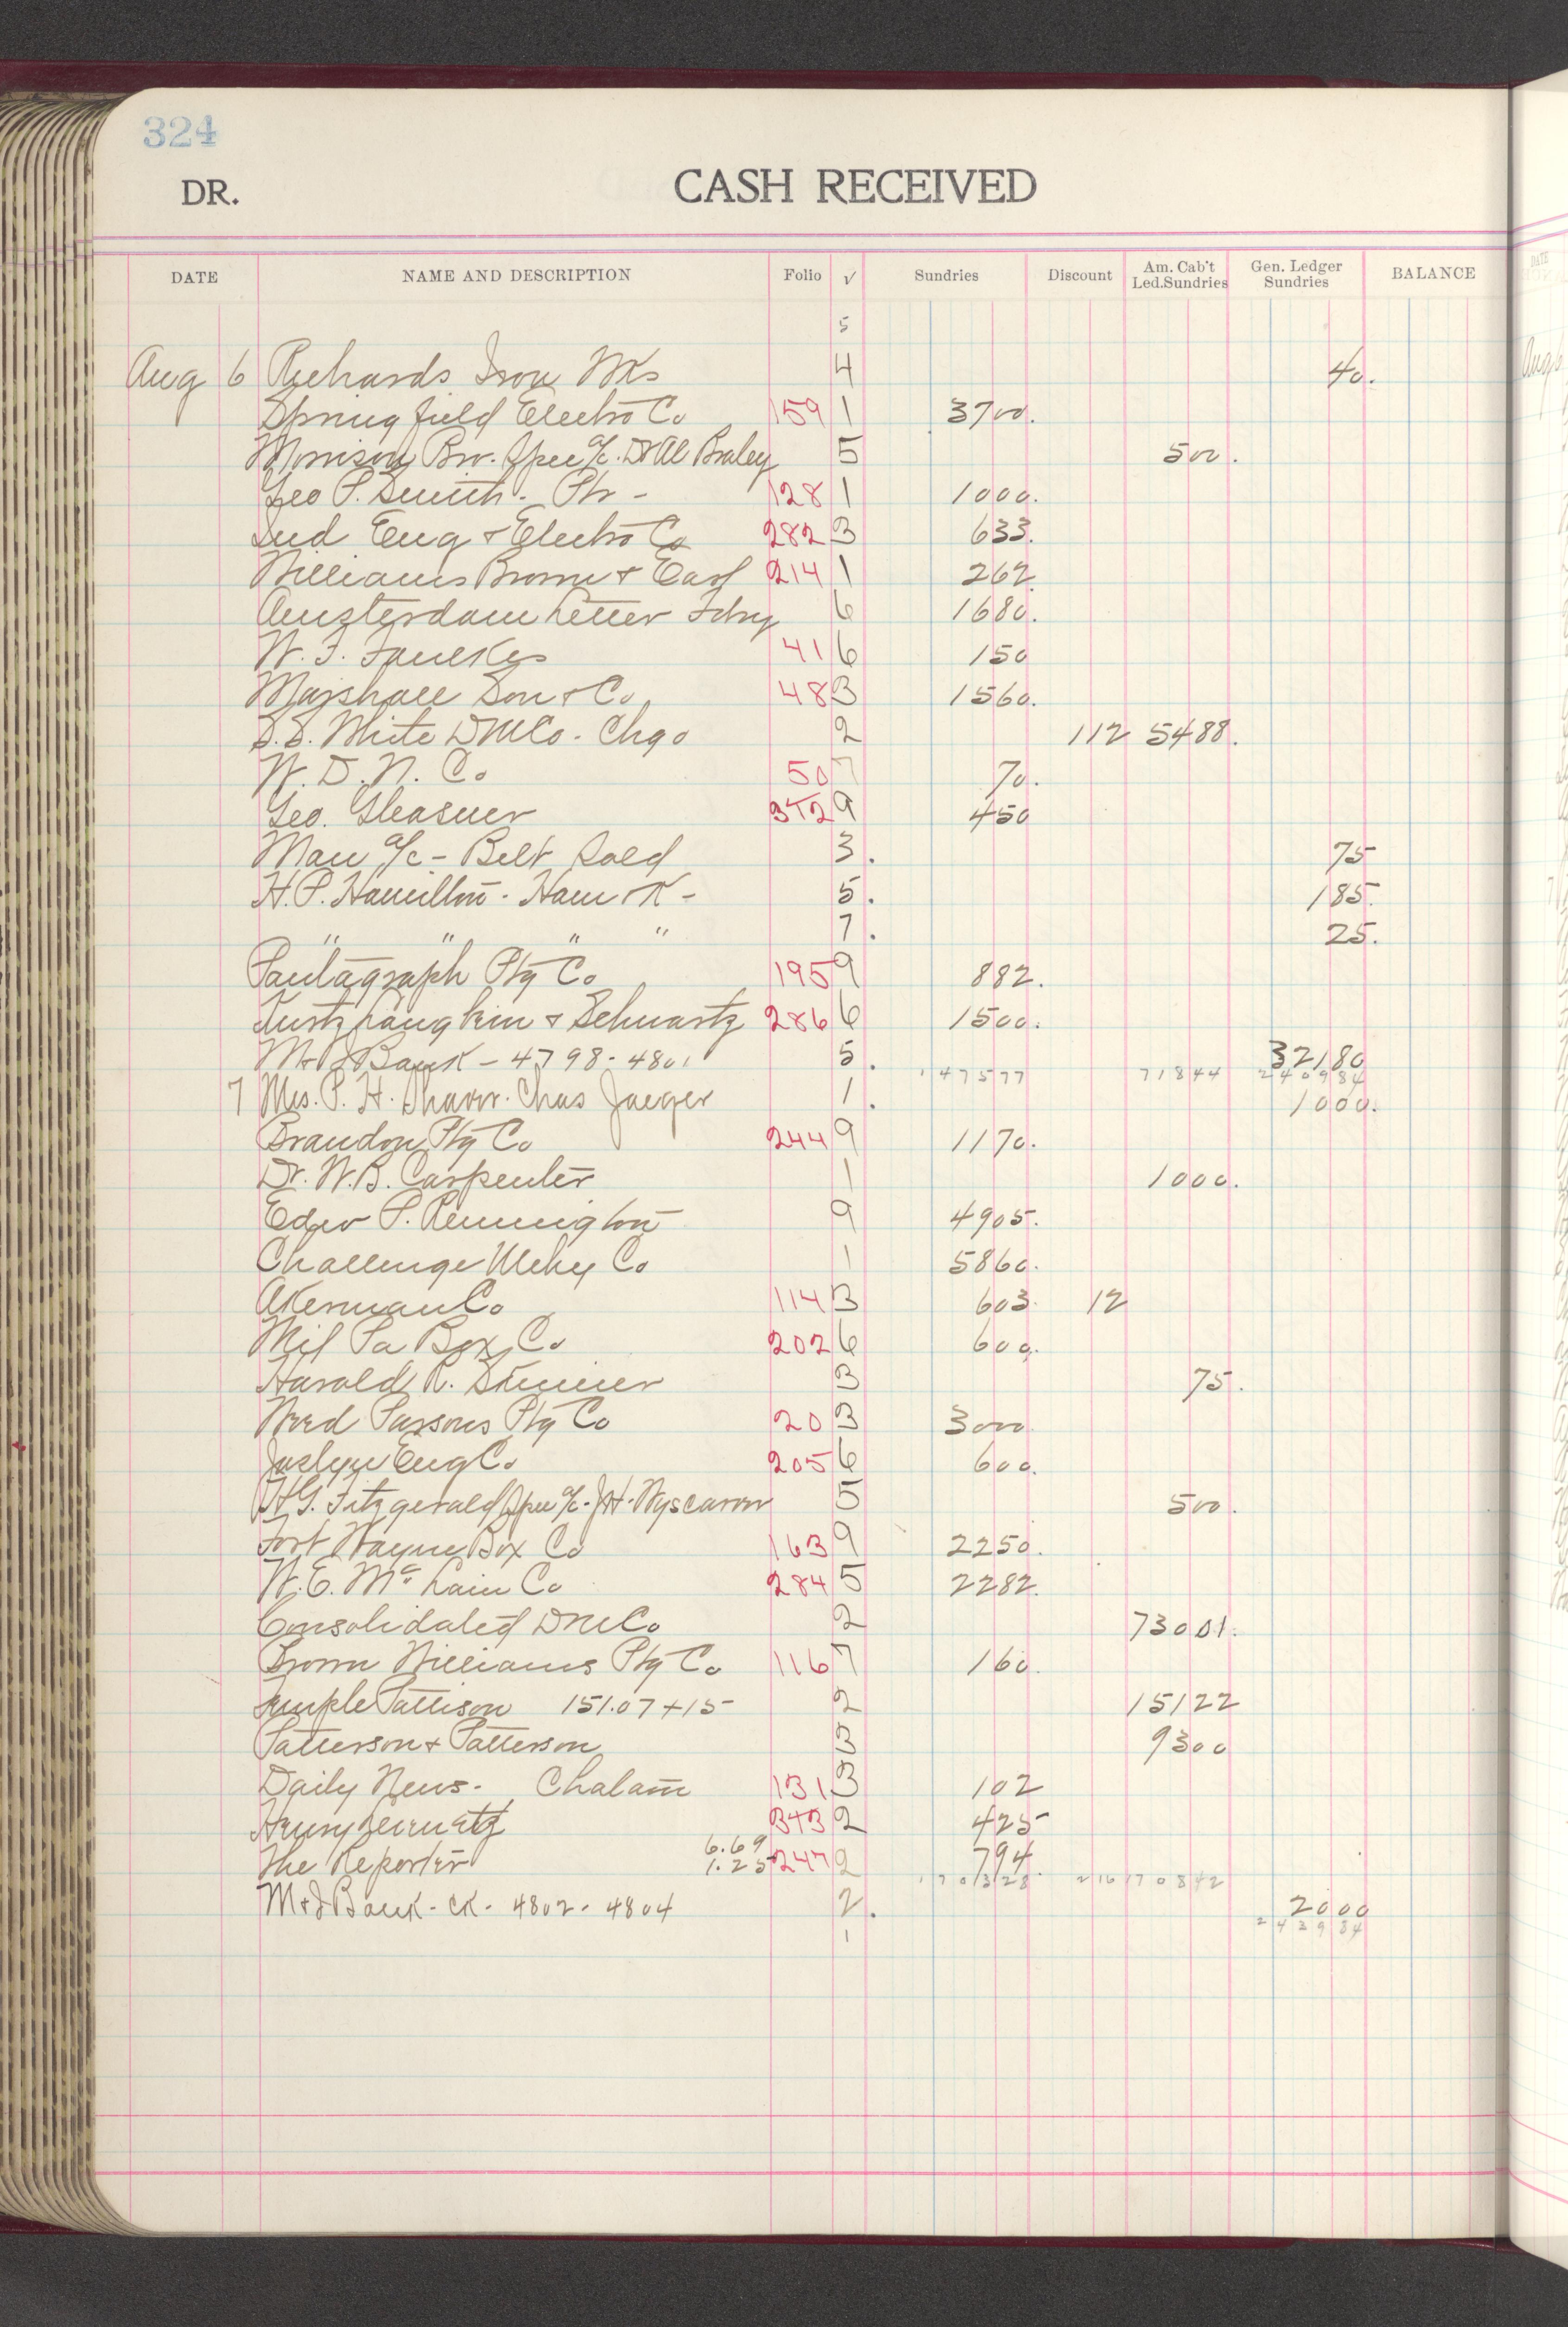 324
DR. CASH RECEIVED
DATE NAME AND DESCRIPTION Folio √ Sundries Discount Am. Cab't Led.Sundries Gen. Ledger Sundries BALANCE
5
Aug 6 Richards Iron Wks 4 40.
Springfield Electro Co 159 1 3700.
Morrison Bro. Spec a/c. Dr Al Braley 5 500.
Geo P. Smith - Ptr - 128 1 1000.
Ind Eng & Electro Co 282 3 633.
Williams Brown & Earl 214 1 262.
Amsterdam Letter Fdry 6 1680.
W. F. Faulkes 41 6 150
Marshall Son & Co 48 3 1560.
S.S. White DMCo - Chgo 2 112 5488.
W. D. N. Co 50 7 70.
Geo. Gleasner 312 9 450
Man a/c - Belt Sold 3. 75
H.P. Hamilton - Ham & K - 5. 185.
" " " " 7. 25.
Pantagraph Ptg Co 195 9 882.
Langkin & Schwartz 286 6 1500.
M & J Bank - 4798 - 4801 5. 32180
147577 71844 240984
7 Mrs. P. H. Chas Jaeger 1. 1000.
Brandon Ptg Co 244 9 1170.
Dr. W.B. Carpenter 1 1000.
Edw P. Remington 9 4905.
Challenge Mchy Co 1 5860.
Akerman Co 114 3 603. 12
Mil Pa Box Co 202 6 600.
Harold R. 3 75.
Ward Parsons Ptg Co 20 3 3000
Joslyn Eng Co 205 6 600.
H.G. Fitzgerald Spec a/c - J.H. 5 500.
Fort Wayne Box Co 163 9 2250.
W.E. McLain Co 284 5 2282.
Consolidated DMCo 2 73001.
Brown Williams Ptg Co 116 7 160.
Temple Pattison 151.07 + 15 2 15122
Patterson & Patterson 3 9300
Daily News - Chalam 131 3 102
Henry 343 2 425
6.69
The Reporter 1.25 247 2 794
1703 28 216 170842
M & J Bank - ck - 4802 - 4804 2. 2000
243984
1